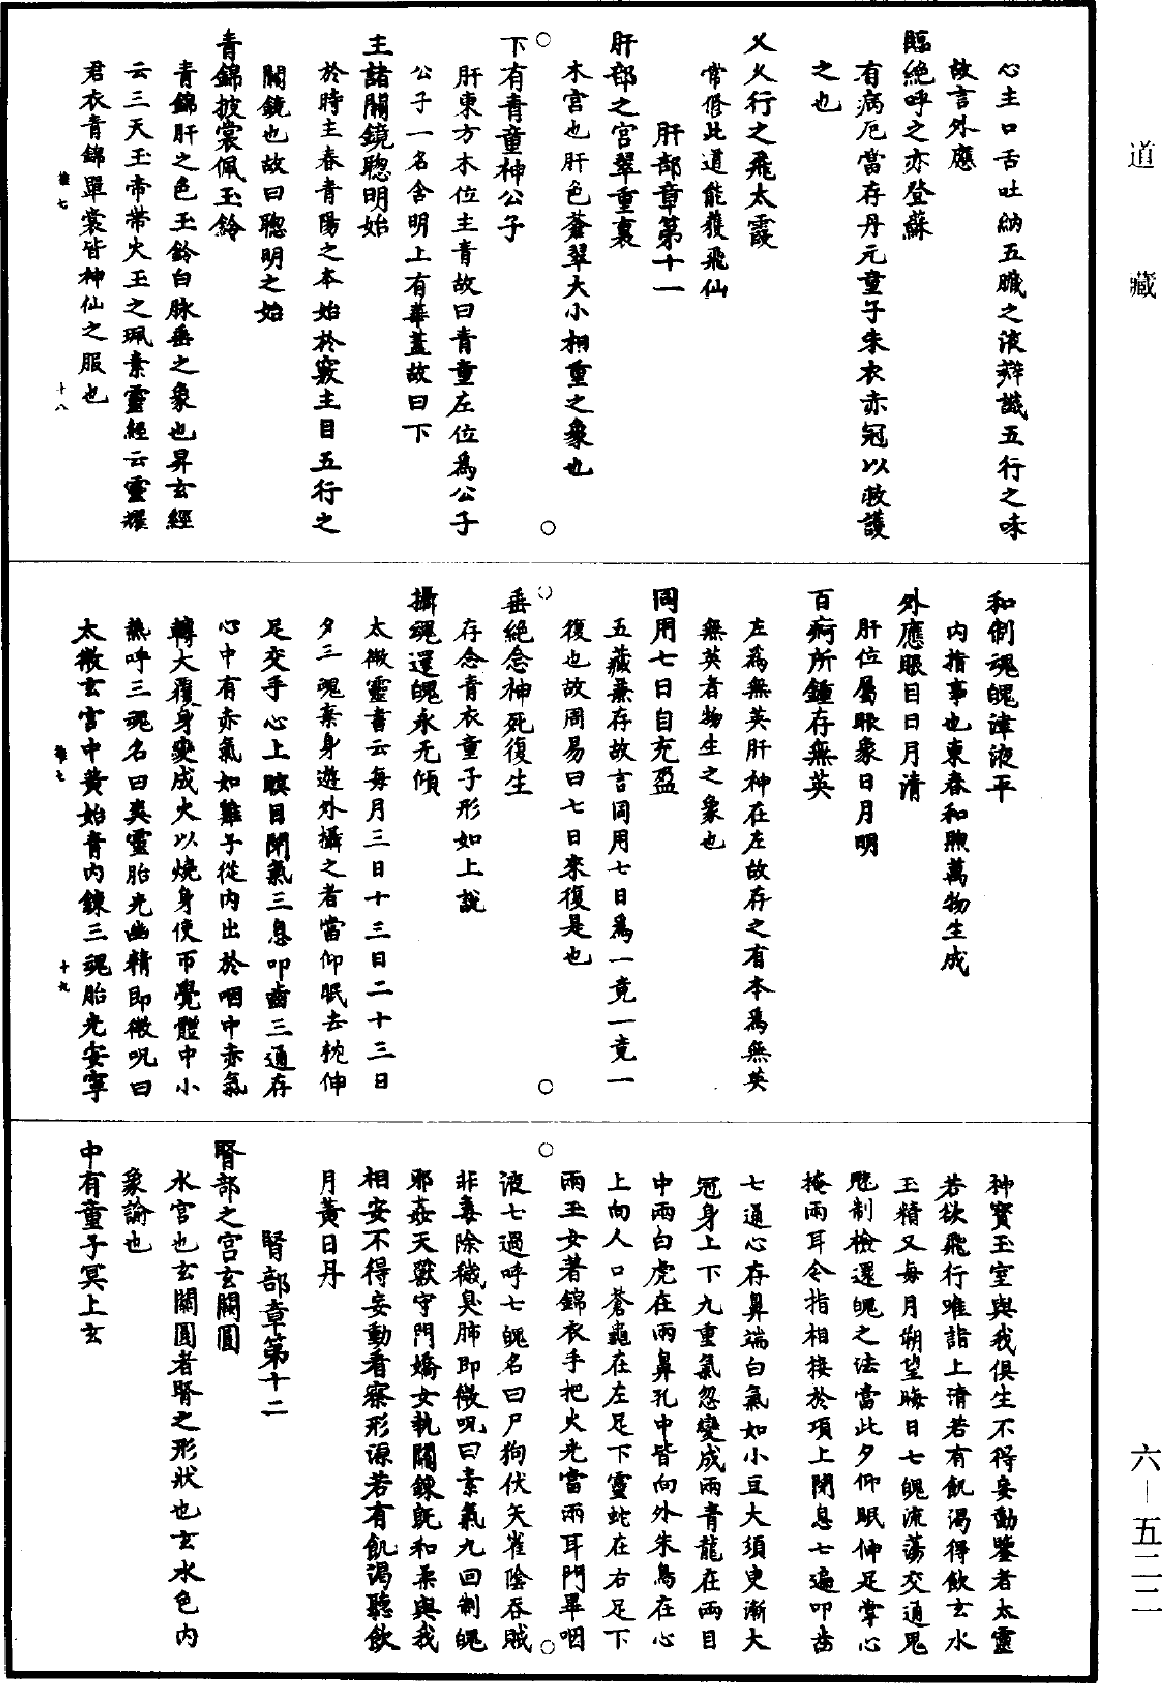 道藏
心主口舌吐納五臟之液辯識五行之味
故言外應
臨絶呼之亦登蘇
有病厄當存丹元童子朱衣赤冠以救護
之也
乆乆行之飛太霞
常修此道能獲飛仙
肝部章第十一
肝部之宮翠重裏
木宮也肝色蒼翠大小相重之象也
下有青童神公子
肝東方木位主青故曰青童左位爲公子
公子一名含明上有華蓋故曰下
主諸關鏡聰明始
於時主春青陽之本始於竅主目五行之
關鏡也故曰聰明之始
青錦披裳佩玉鈴
青錦肝之色玉鈴白脉垂之象也昇玄經
云三天玉帝帶火玉之珮素靈經云靈耀
君衣青錦單裳皆神仙之服也
十八
和制魂魄津液平
内指事也東春和煦萬物生成
外應眼目日月清
肝位屬眼象日月明
百痾所鍾存無英
左爲無英肝神在左故存之有本爲無英
無英者物生之象也
同用七日自充盈
五藏兼存故言同用七日爲一竟一竟一
復也故周易曰七日來復是也
垂絶念神死復生
存念青衣童子形如上說
攝魂還魄永无傾
太微靈書云每月三日十三日二十三日
夕三魂棄身遊外攝之者當仰眠去枕伸
足交手心上瞑目閉氣三息叩齒三通存
心中有赤氣如雞子從内出於咽中赤氣
轉大覆身變成火以燒身使帀覺體中小
熱呼三魂名曰爽靈胎光幽精即微呪曰
太微玄宮中黄始青内鍊三魂胎光安寧
十九
神寳玉室與我俱生不得妄動鑒者太靈
若欲飛行唯詣上清若有飢渴得飲玄水
玉精又每月朔望晦日七魄流蕩交通鬼
魅制檢還魄之法當此夕仰眠伸足掌心
掩兩耳令指相接於項上閉息七遍叩齒
七通心存鼻端白氣如小豆大須臾漸大
冠身上下九重氣忽變成兩青龍在兩目
中兩白虎在兩鼻孔中皆向外朱鳥在心
上向人口蒼龜在左足下靈蛇在右足下
兩玉女著錦衣手把火光當兩耳門畢咽
液七過呼七魄名曰尸狗伏矢雀陰吞賊
非毒除穢臭肺即微呪曰素氣九回制魄
邪姦天獸守門嬌女執關鍊旣和柔與我
相安不得妄動看察形源若有飢渴聽飲
月黃日丹
腎部章第十二
腎部之宮玄闕圓
水宮也玄闕圓者腎之形狀也玄水色内
象諭也
中有童子冥上玄
六－五二二